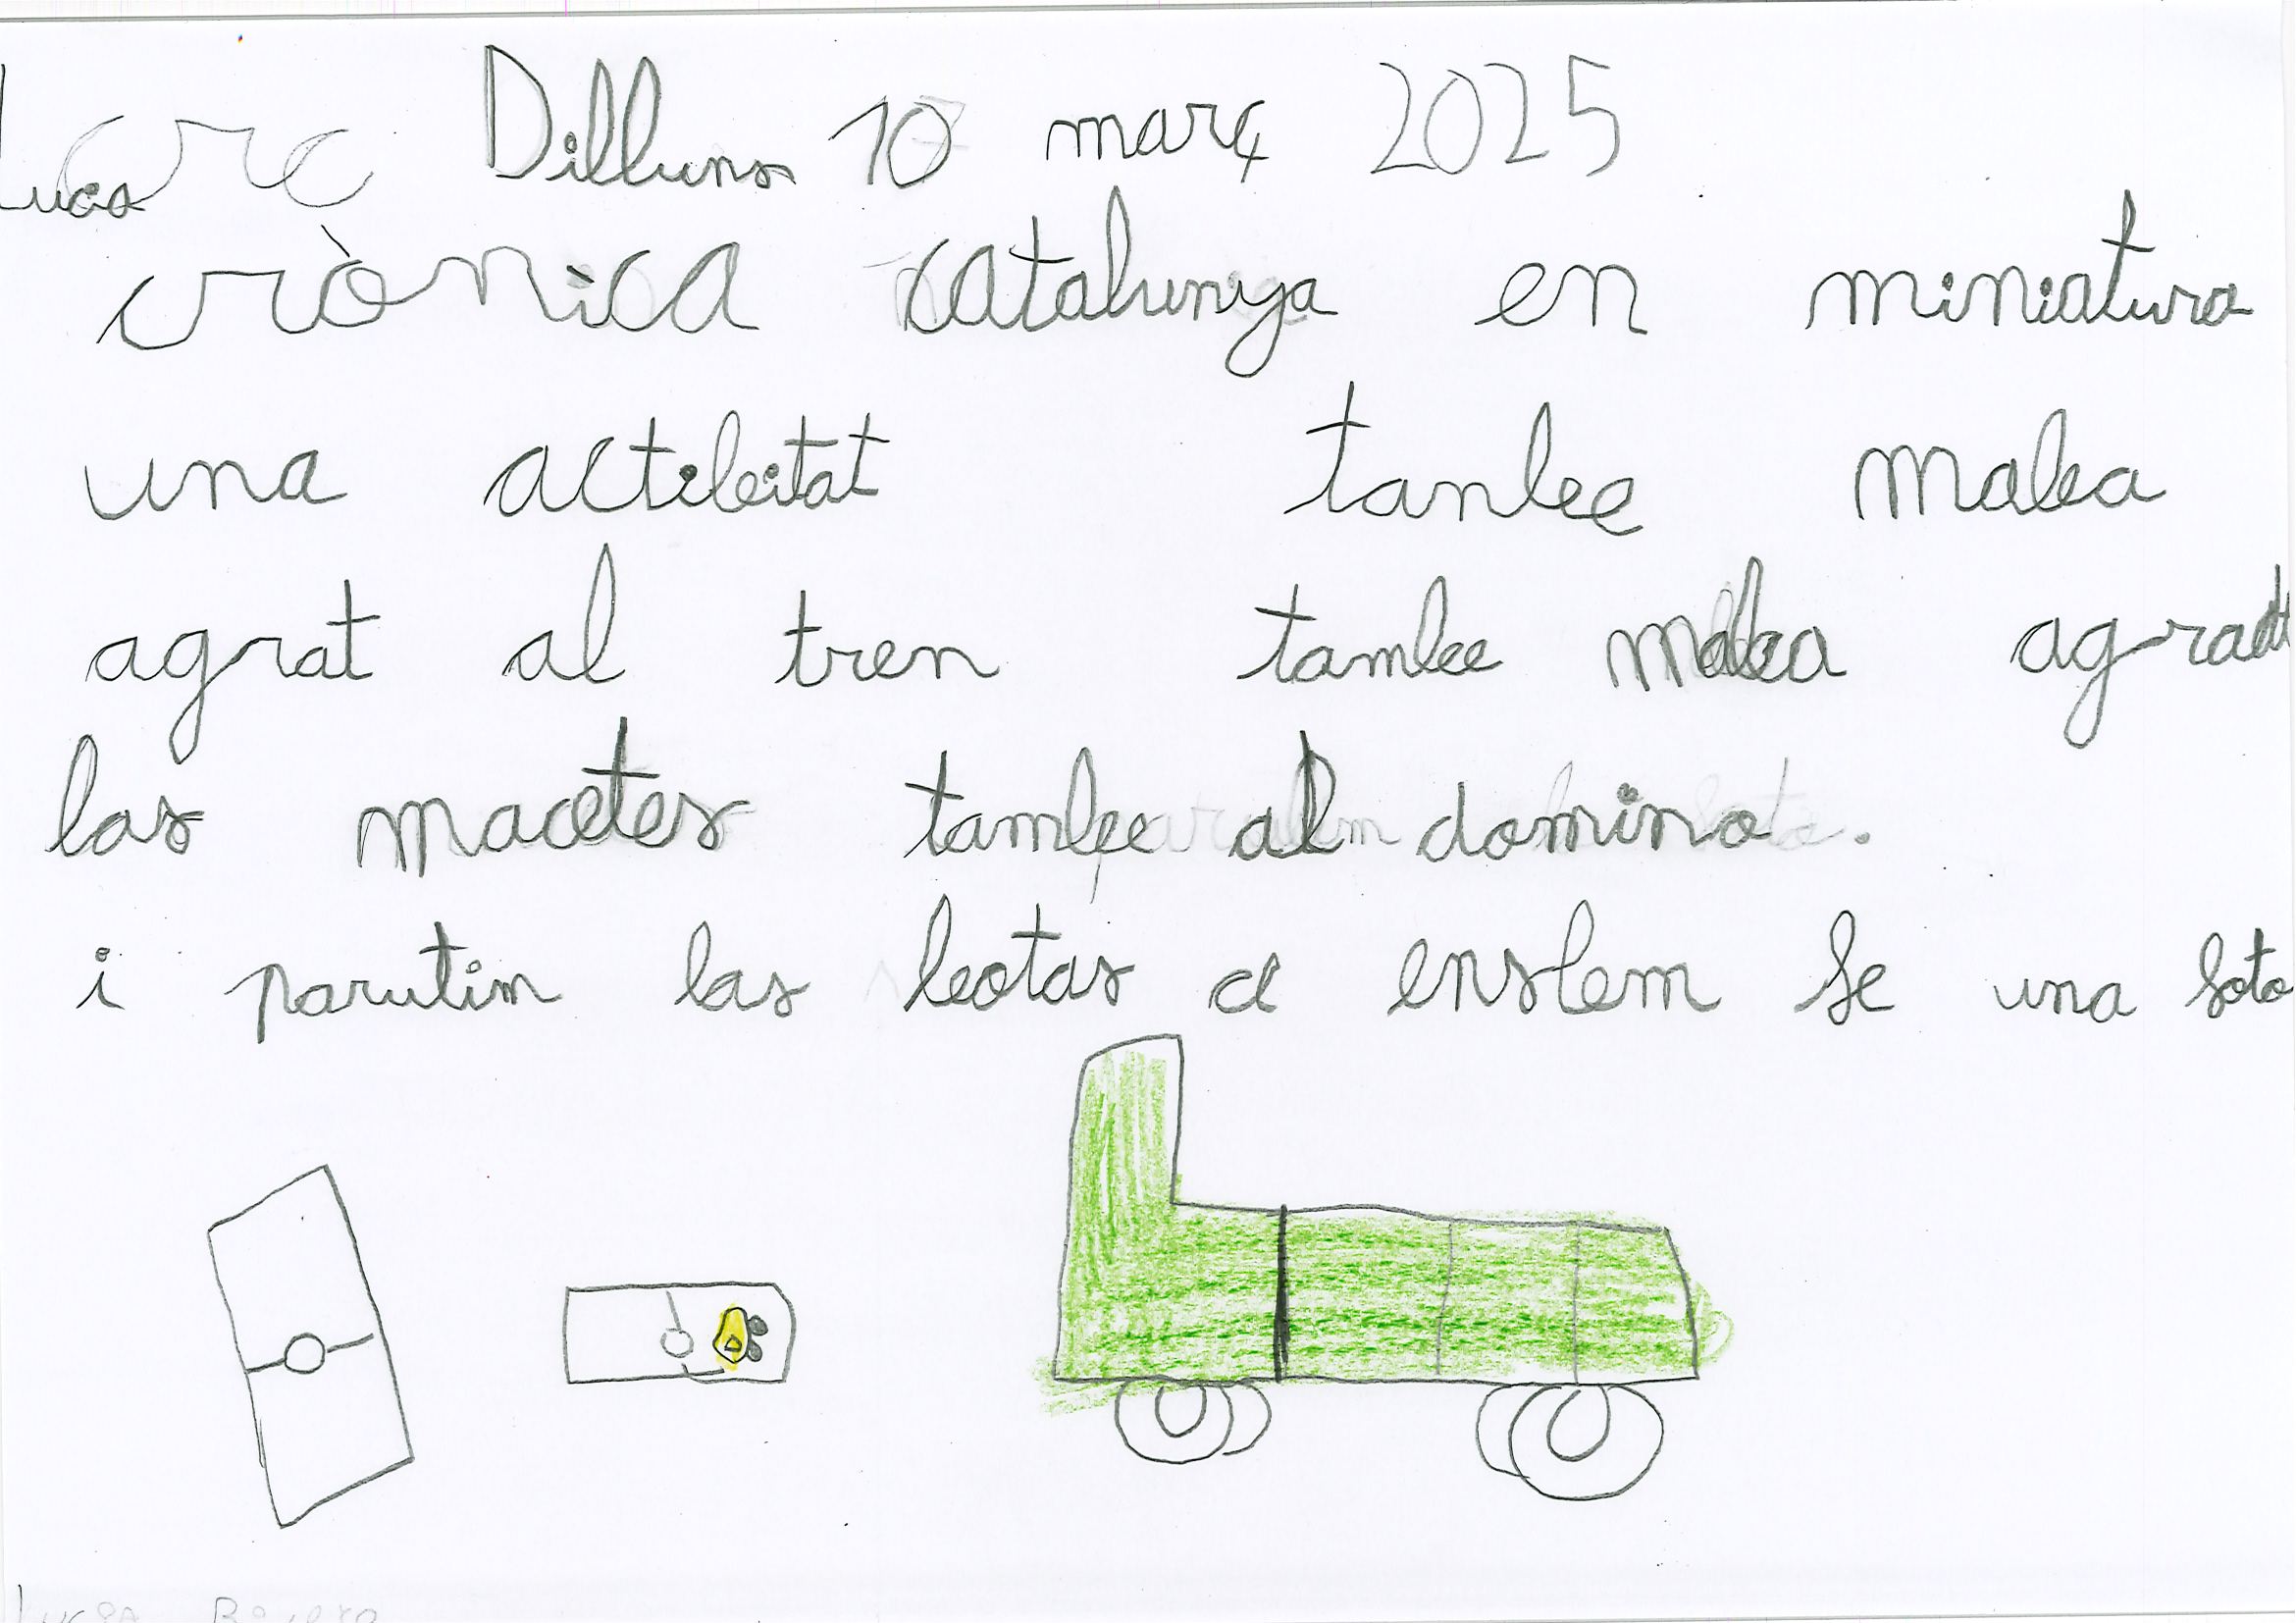 Lucas Dilluns 10 març 2025
crònica catalunya en miniatura
una actibitat tanbe maba
agrat al tren tambe maba agradt
las macetes tambe al domino.
i parutim las botas d ensfem fe una foto